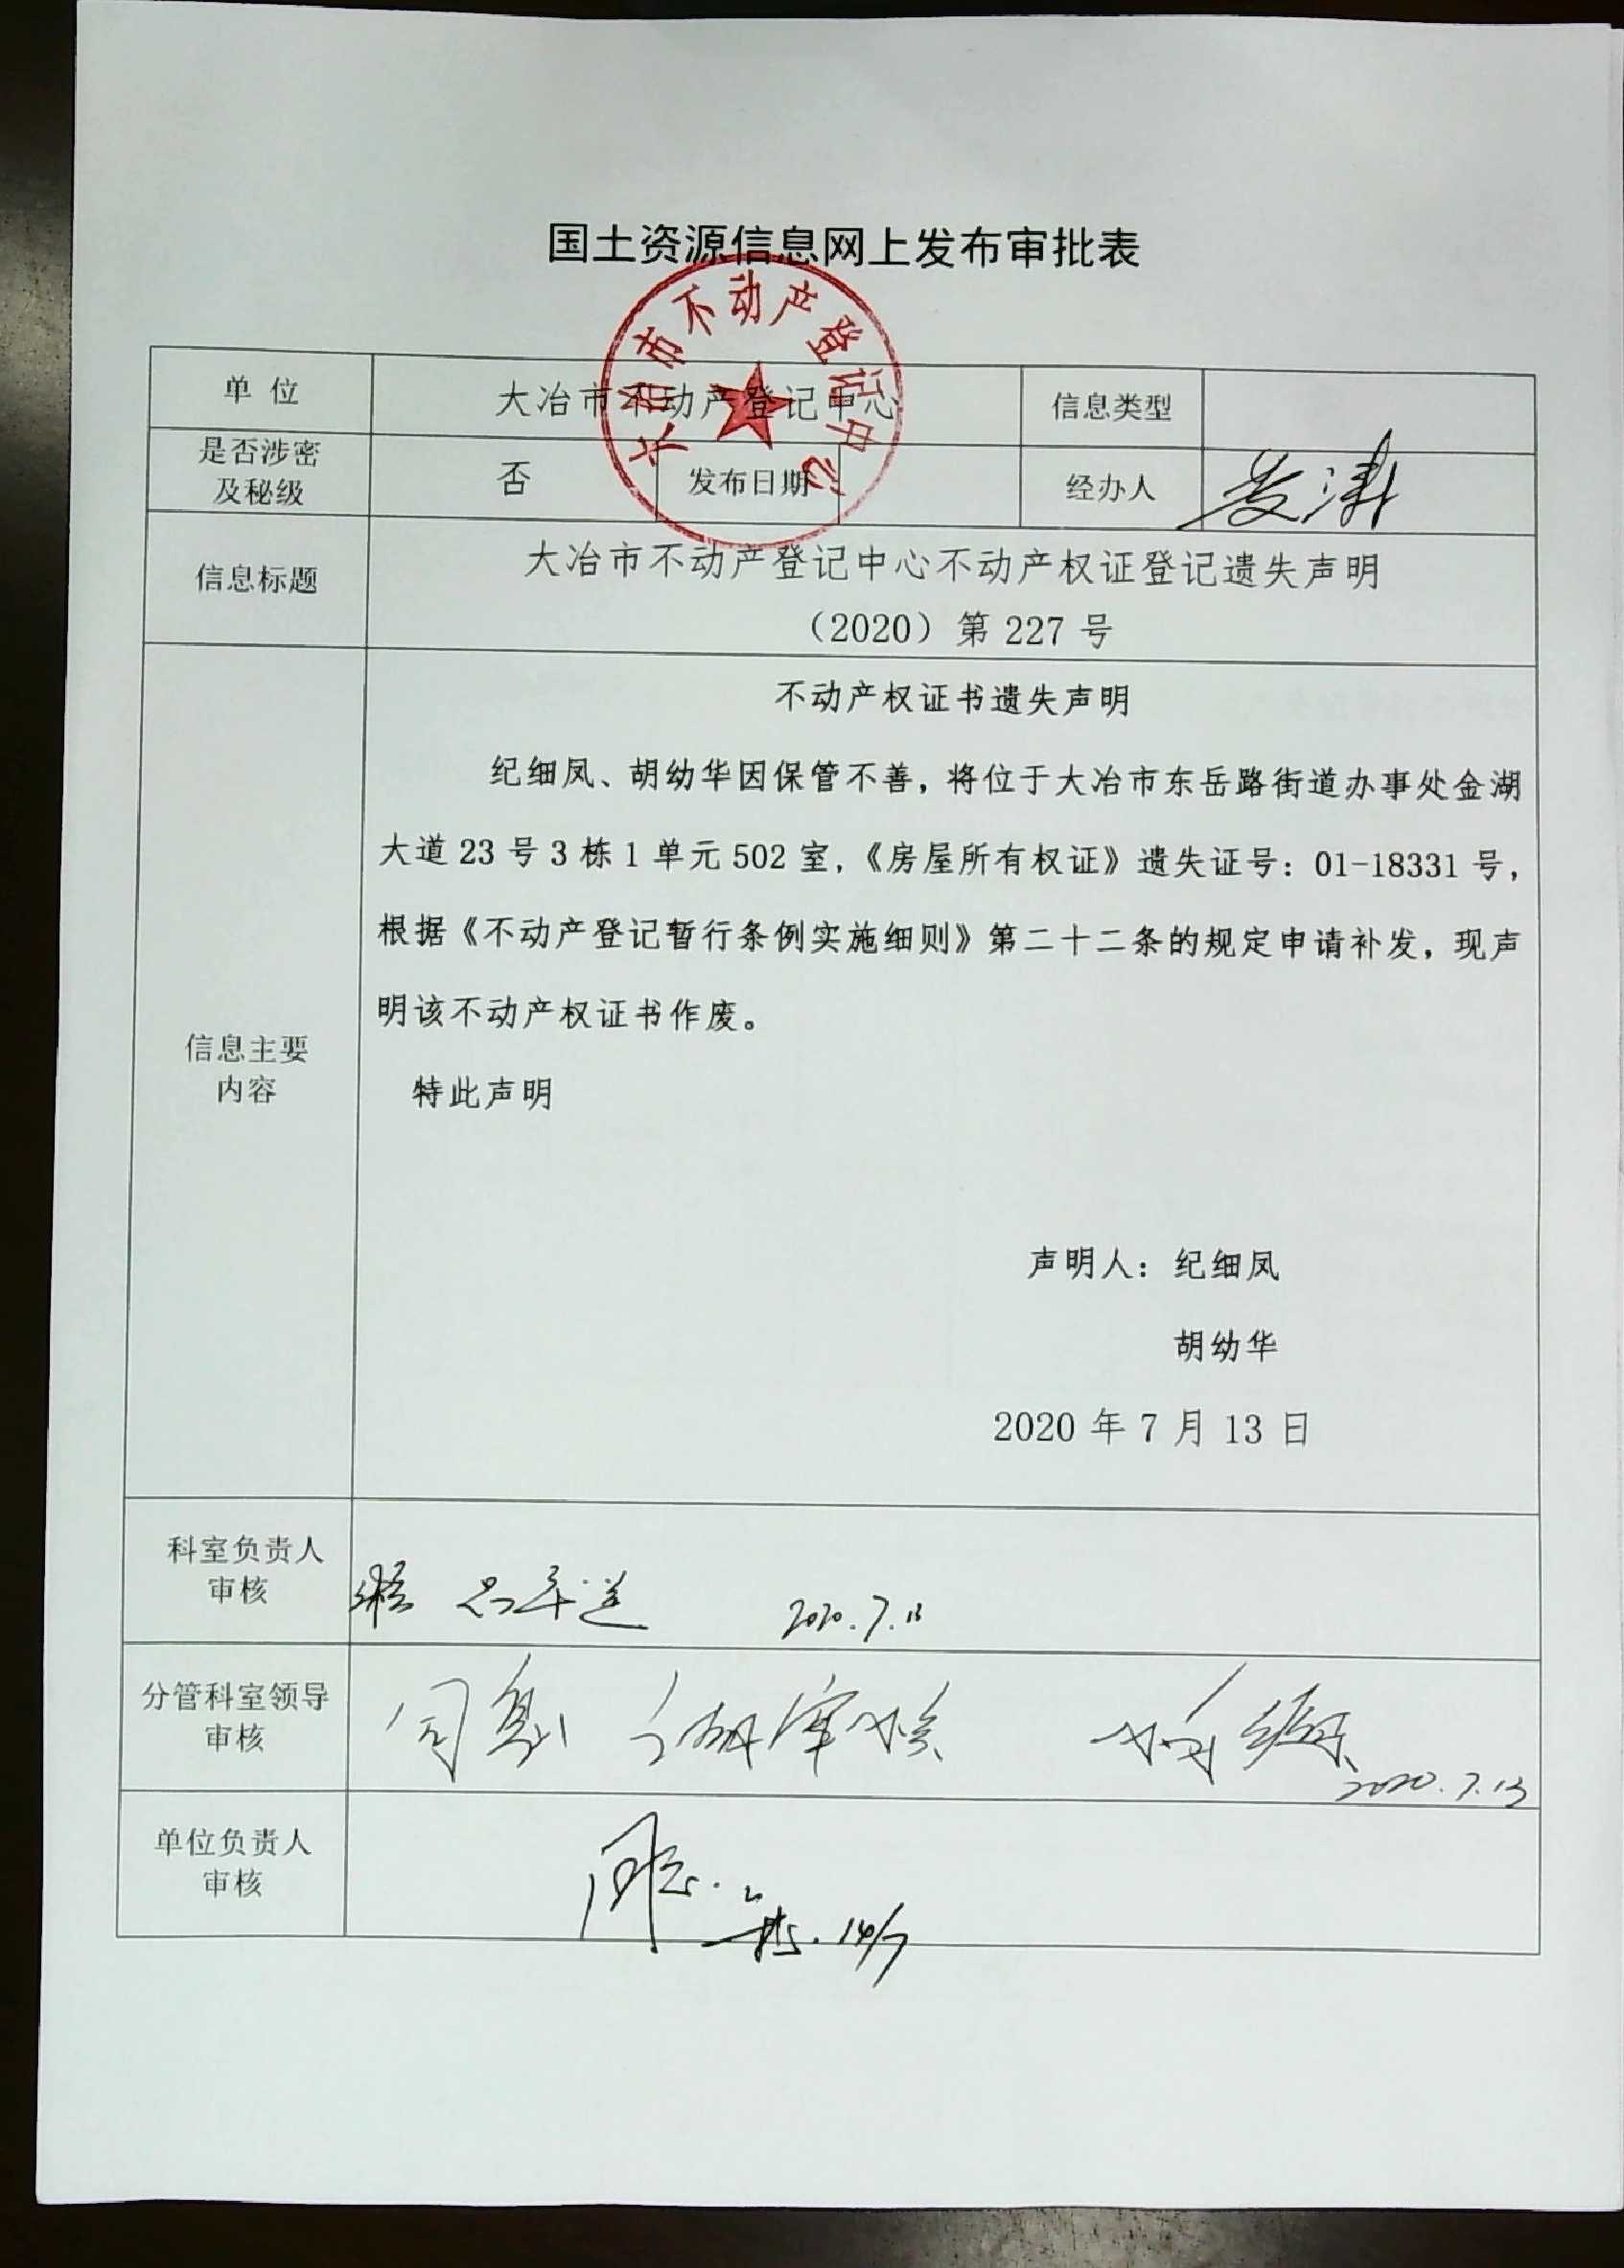 国土资源信息网上发布审批表
大冶市不动产登记中心
单 位
大冶市不动产登记中心
信息类型
是否涉密
及秘级
否
发布日期
经办人
信息标题
大冶市不动产登记中心不动产权证登记遗失声明
（2020）第 227 号
信息主要
内容
不动产权证书遗失声明
纪细凤、胡幼华因保管不善，将位于大冶市东岳路街道办事处金湖
大道 23 号 3 栋 1 单元 502 室，《房屋所有权证》遗失证号：01-18331 号，
根据《不动产登记暂行条例实施细则》第二十二条的规定申请补发，现声
明该不动产权证书作废。
特此声明
声明人：纪细凤
胡幼华
2020 年 7 月 13 日
科室负责人
审核
2020.7.13
分管科室领导
审核
2020.7.13
单位负责人
审核
14/7